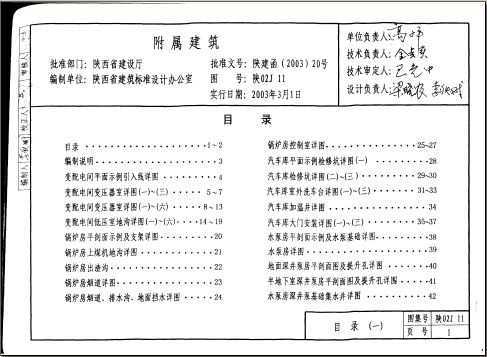 附属建筑
批准部门：陕西省建设厅
编制单位：陕西省建筑标准设计办公室
批准文号：陕建函(2003)20号
图 号：陕02J 11
实行日期：2003年3月1日
单位负责人：
技术负责人：
技术审定人：
设计负责人：
目 录
目录 1~2
编制说明 3
变配电间平面示例引入线详图 4
变配电间变压器室详图(一)~(三) 5~7
变配电间变压器室详图(一)~(六) 8~13
变配电间低压室地沟详图(一)~(六) 14~19
锅炉房平剖面示例及支架详图 20
锅炉房上煤机地沟详图 21
锅炉房出渣沟 22
锅炉房烟道详图 23
锅炉房烟道、排水沟、地面挡水详图 24
锅炉房控制室详图 25~27
汽车库平面示例检修坑详图(一) 28
汽车库检修坑详图(二)~(三) 29~30
汽车库室外洗车台详图(一)~(三) 31~33
汽车库加温井详图 34
汽车库大门安装详图(一)~(三) 35~37
水泵房平剖面示例及水泵基础详图 38
水泵房详图 39
地面深井泵房平剖面图及提升孔详图 40
半地下室深井泵房平剖面图及提升孔详图 41
水泵房深井泵基础集水井详图 42
目 录 (一)
图集号 陕02J 11
页 号 1
编制人
校正人
审核人